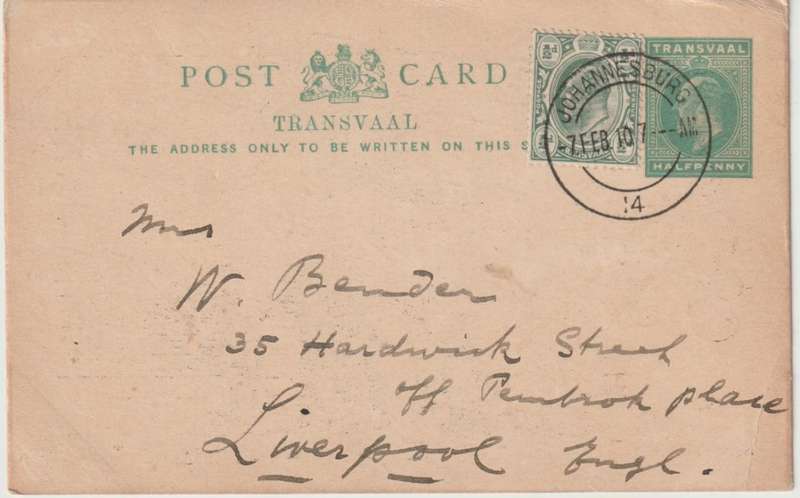 POST CARD
TRANSVAAL
THE ADDRESS ONLY TO BE WRITTEN ON THIS S
TRANSVAAL
HALFPENNY
JOHANNESBURG
7 FEB 10 7 AM
14
Mrs
W. Bender
35 Hardwick Street
off Pembrok place
Liverpool Engl.